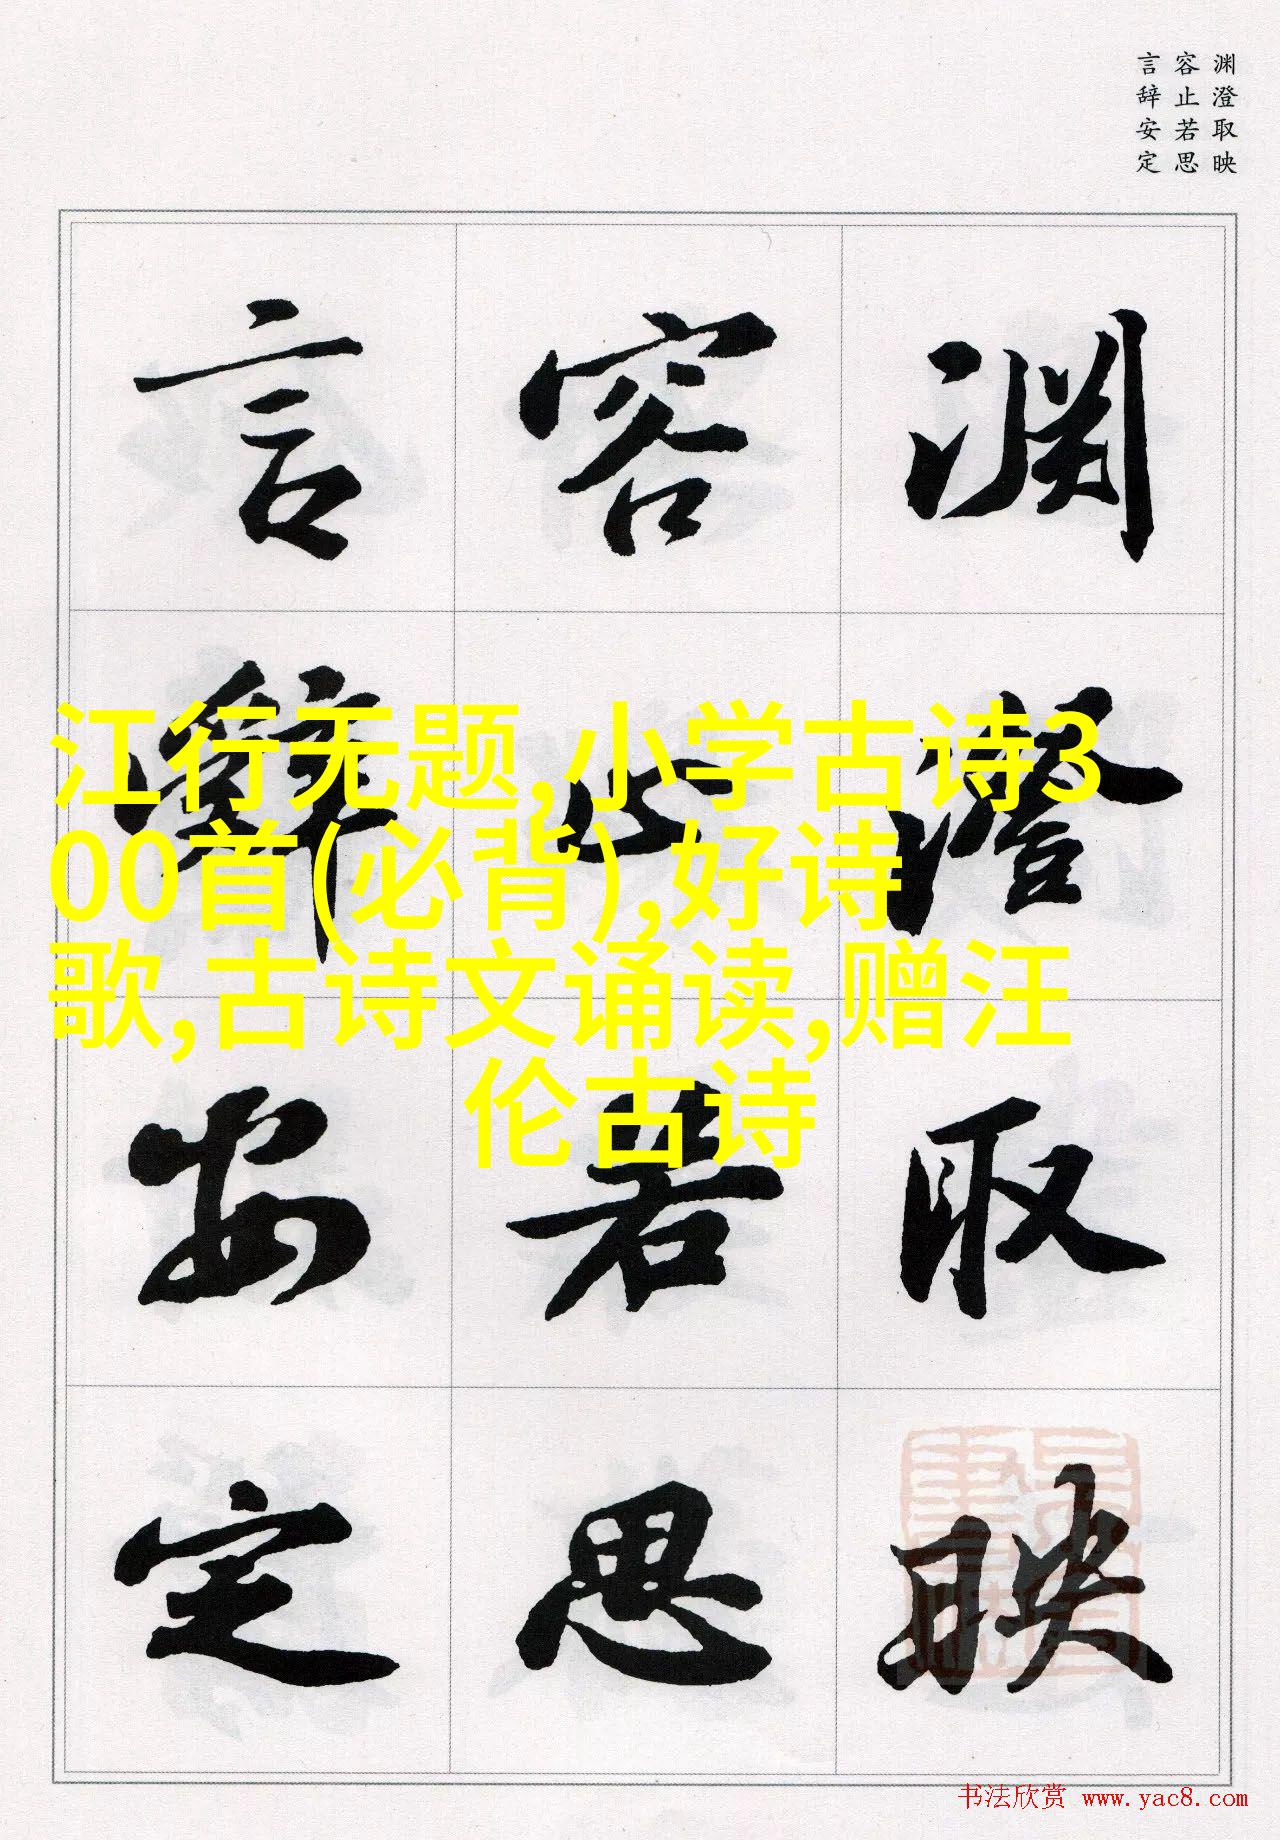 渊澄取映
容止若思
言辞安定
渊澄取映
容止若思
言辞安定
江行无题,小学古诗3
00首(必背),好诗
歌,古诗文诵读,赠汪
伦古诗
书法欣赏 www.yac8.com